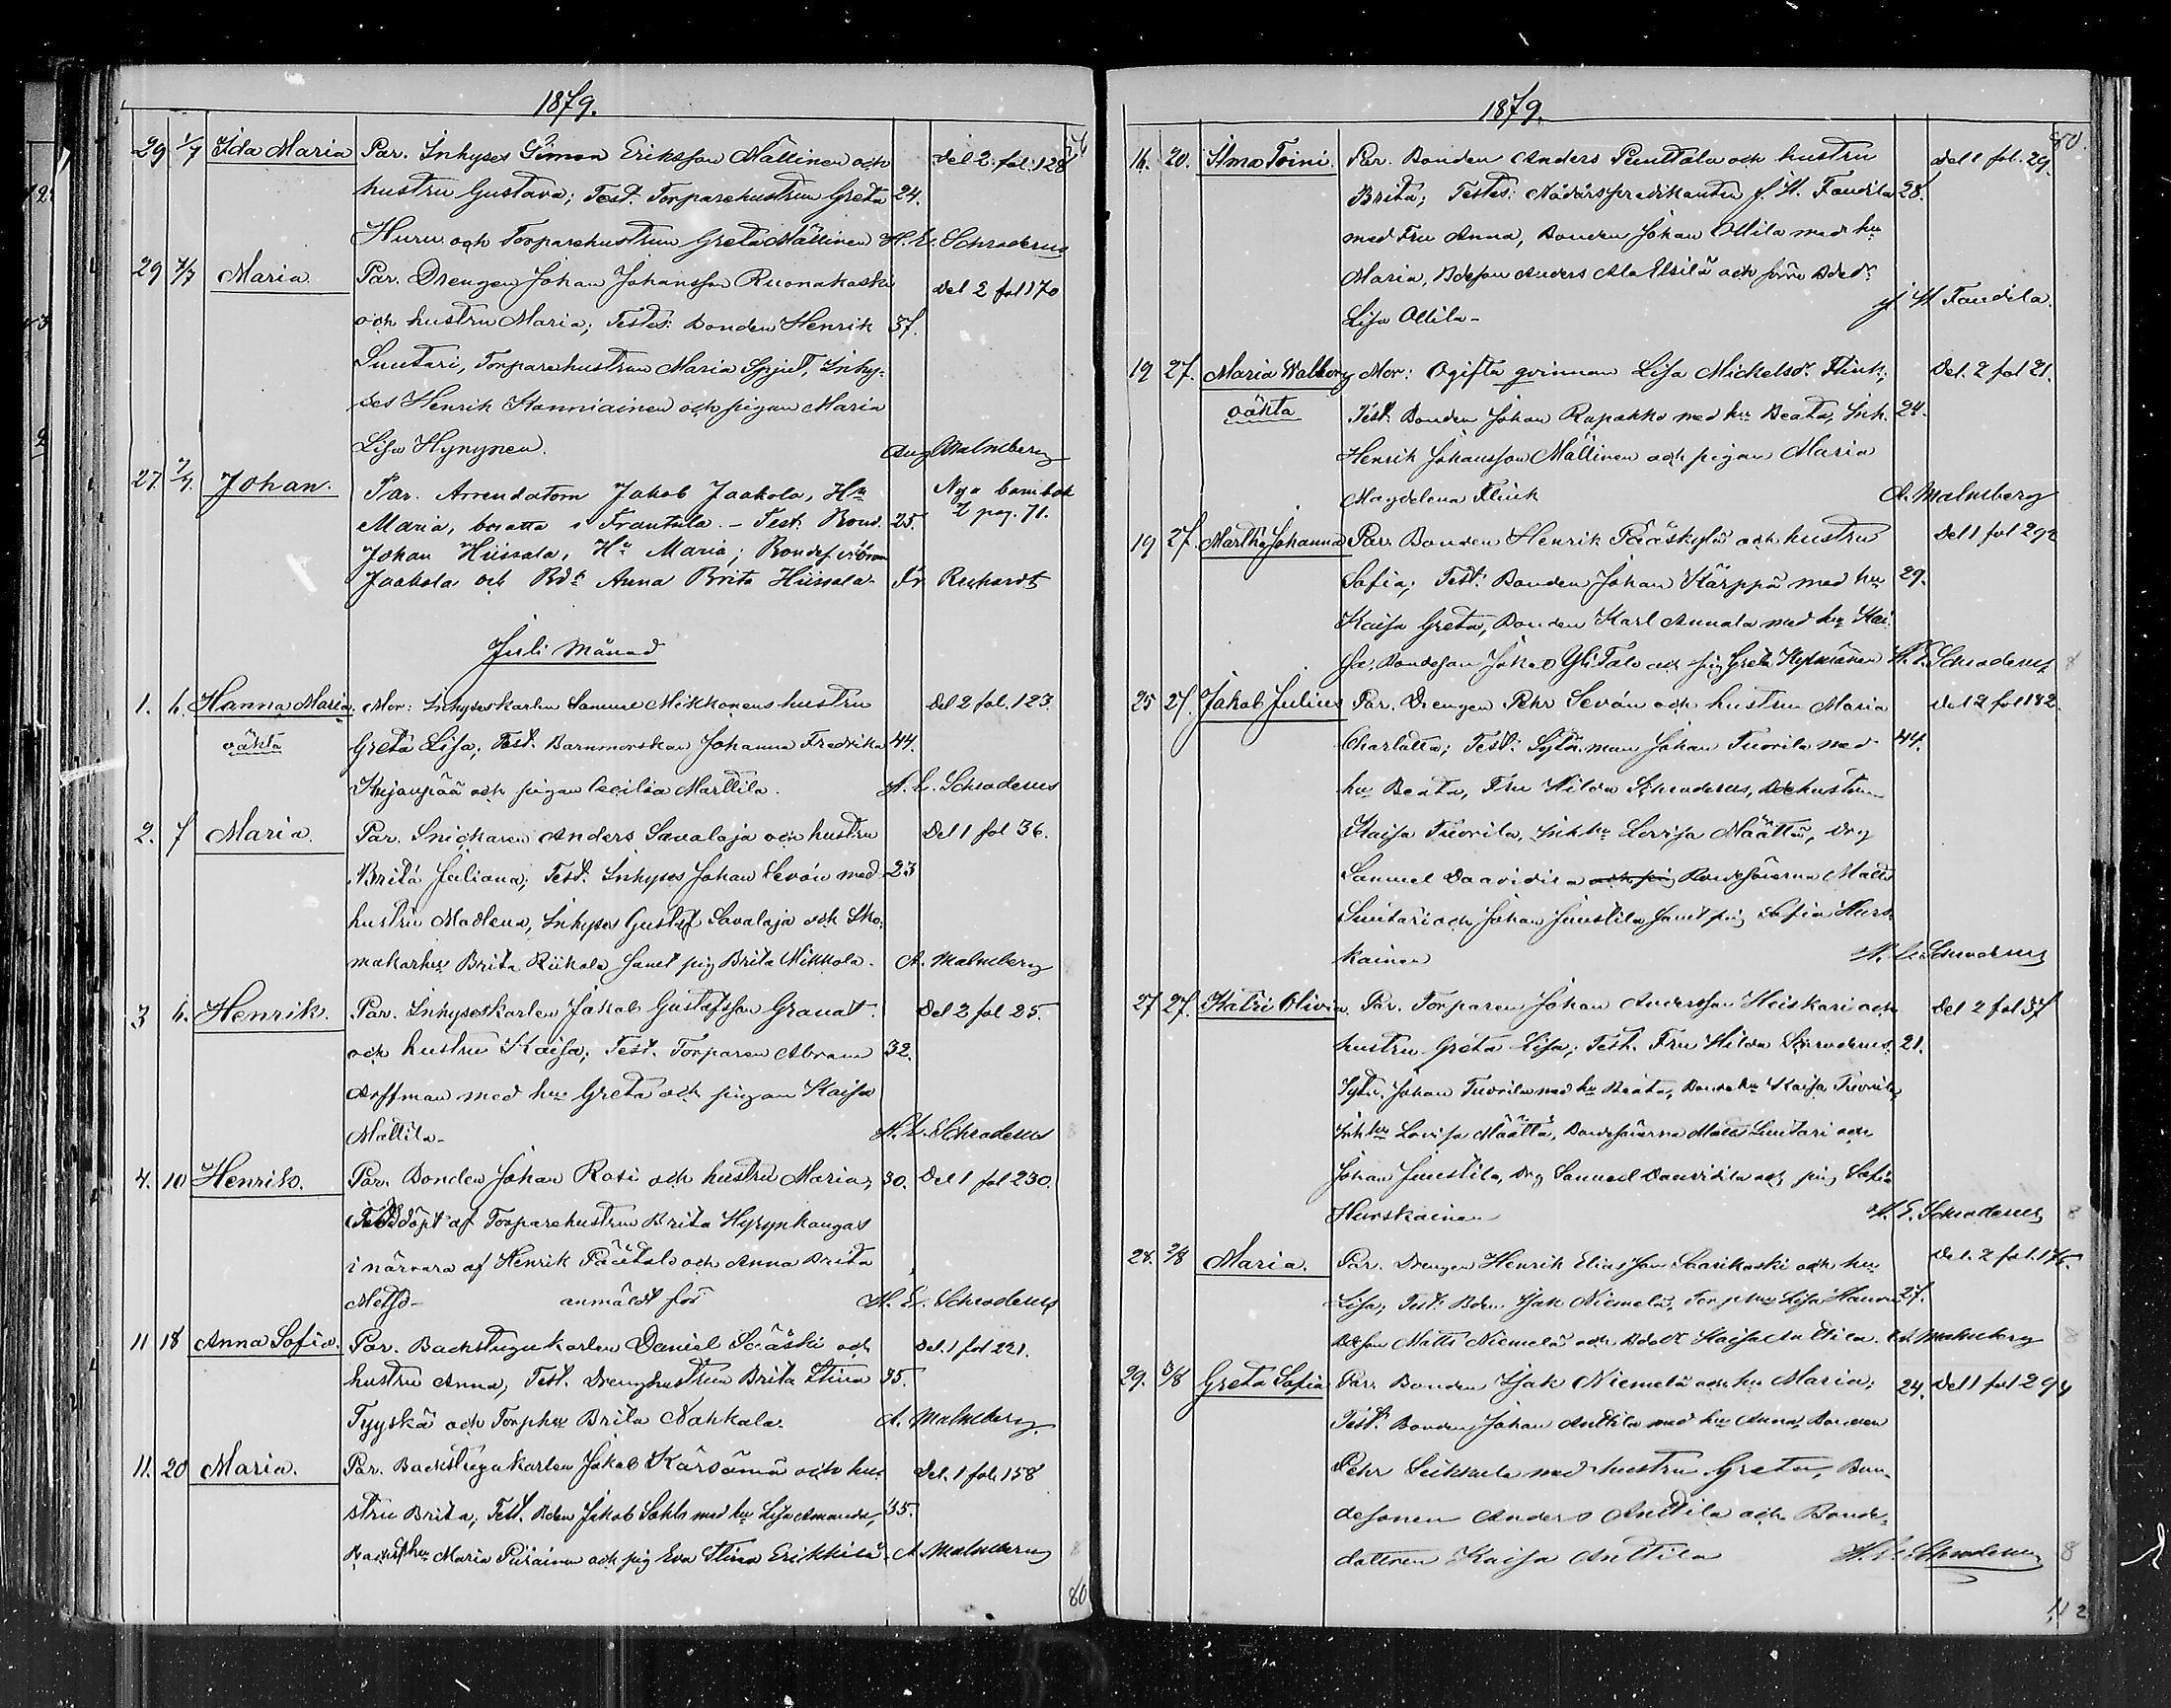 1879.
29 1/7 Ida Maria Par. Inhyses Simon Eriksson Mällinen och Del 2 fol. 128
hustru Gustava; Test. Torparehustrun Greta 24.
Huru och Torparehustrun Greta Mällinen H. E. Schroderus
29 7/7 Maria. Par. Drengen Johan Johansson Ruonakoski Del 2 fol 170
och hustru Maria; Testes: Bonden Henrik 37.
Suutari, Torparehustrun Maria Spjut, Inhy-
ses Henrik Kanniainen och pigan Maria
Lisa Hynynen. Aug Malmberg
27. 7/7. Johan. Par. Arrendatorn Jakob Jaakola, Hu Nya barnbok
Maria, bosatta i Frantsila. – Test. Bond. 25. 2 pag. 71.
Johan Hiissala, Hu Maria; Bondes.
Jaakola och Bdr Anna Brita Hiissala. Fr Richardt
Juli Månad
1. 6. Hanna Maria. Mor: Inhyseskarlen Samuel Mikkonens hustru Del 2 fol. 123.
oäkta Greta Lisa; Test. Barnmorskan Johanna Fredrika 44.
Kujanpää och pigan Cecilia Marttila. H. E. Schroderus
2. 7 Maria. Par. Snickaren Anders Savalaja och hustru Del 1 fol 36.
Brita Juliana; Test. Inhyses Johan Levón med 23
hustru Madlena, Inhyses Gustaf Savalaja och Sko-
makarhu Brita Riikola samt pig Brita Mikkola. A. Malmberg
3 6. Henrik. Par. Inhyseskarlen Jakob Gustafsson Granat. Del 2 fol 25.
och hustru Kaisa; Test. Torparen Abram 32.
Arffman med hu Greta och pigan Kaisa
Mattila – H. E. Schroderus
4. 10 Henrik. Par. Bonden Johan Rosi och hustru Maria; 30. Del 1 fol 230.
döpt af Torparehustrun Brita Hyrynkangas
i närvara af Henrik Päätalo och Anna Brita
Metso – anmäldt för H. E. Schroderus
11 18 Anna Sofia. Par. Backstugukarlen Daniel Sääski och Del. 1 fol 221.
hustru Anna; Test. Drenghustrun Brita Stina 35.
Tyyskä och Torphu Brita Nahkala. A. Malmberg.
11. 20 Maria. Par. Backstugukarlen Jakob Kärsämä och hu- Del. 1 fol. 158
stru Brita; Test. Bden Jakob Sohlo med hu Lisa Amanda, 35.
Backsthu Maria Piirainen och pig Eva Stina Erikkilä. A. Malmberg
80
1879.
80.
16. 20. Ilma Toini. Par. Bonden Anders Penttala och hustru Del 1 fol. 29.
Brita; Testes: Nådårspredikanten J. W. Fandila 28.
med Fru Anna, Bonden Johan Ollila med hu
Maria, Bdeson Anders Ala Elsilä och Bdedr
Lisa Ollila – J W Fandila.
19 27. Maria Walborg Mor: Ogifta qvinnan Lisa Mickelsdr Flink; Del. 2 fol 21.
oäkta Test. Bonden Johan Rapakko med hu Beata, Inh. 24.
Henrik Johansson Mällinen och pigan Maria
Magdelena Flink A. Malmberg
19 27. Martha Johanna Par. Bonden Henrik Pääskylä och hustru Del 1 fol 292
Sofia; Test: Bonden Johan Kärppä med hu 29.
Kaisa Greta, Bonden Karl Annala med hu Kai-
sa, Bondeson Jakob Yli Talo och pig Greta H. E. Schroderus
25 27. Jakob Julius Par. Drengen Pehr Levón och hustru Maria Del 2 fol 182.
Charlotta; Test: Sytn. man Johan Tuorila med 44.
hu Beata, Fru Hilda Schroderus, Bdehustrun
Kaisa Tuorila, Inhhu Lovisa Määttä, drg
Samuel Daavidila och pig Bondesönerna Matts
Suutari och Johan Junttila samt pig Sofia Hurs-
kainen H. E. Schroderus
27 27. Katri Olivia. Par. Torparen Johan Andersson Heiskari och Del 2 fol 37
hustru Greta Lisa; Test. Fru Hilda Schroderus, 21.
Sytn. Johan Tuorila med hu Beata, Bondehu Kaisa Tuorila,
Inhhu Lovisa Määttä, Bondesönerna Matts Suutari och
Johan Junttila, Drg Samuel Daavidila och pig Sofia
Hurskainen H. E. Schroderus
28. 2/8 Maria. Par. Drengen Henrik Eliasson Saarikoski och hu Del. 2 fol. 175.
Lisa; Test. Bden Isak Niemelä, Torphu Lisa 27.
Bdeson Matts Niemelä och Bdedr Kaisa Anttila. A. Malmberg
29. 3/8 Greta Sofia Par. Bonden Isak Niemelä och hu Maria; 24. Del 1 fol 294
Test. Bonden Johan Anttila med hu Anna, Bonden
Pehr Leikkula med hustru Greta, Bon-
desonen Anders Anttila och Bonde-
dottren Kaisa Anttila H. E. Schroderus 8